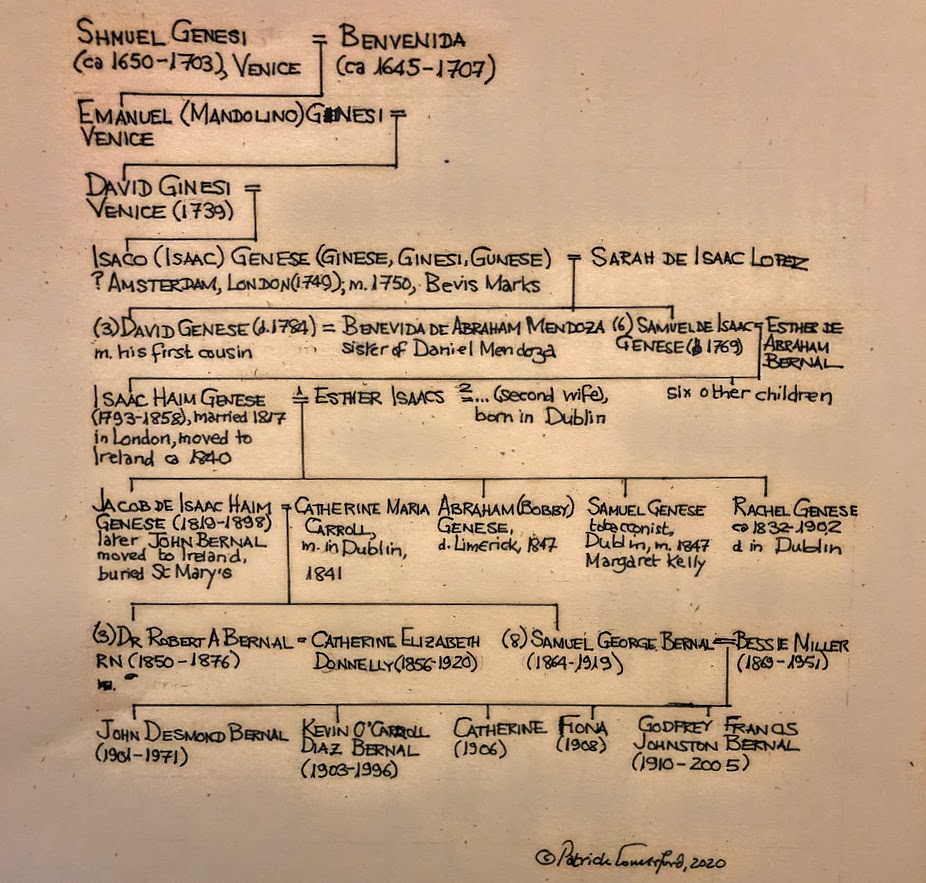 SHMUEL GENESI = BENVENIDA
(ca 1650-1703), VENICE (ca 1645-1707)
EMANUEL (MANDOLINO) GINESI =
VENICE
DAVID GINESI =
VENICE (1739)
ISACO (ISAAC) GENESE (GINESE, GINESI, GUNESE) = SARAH DE ISAAC LOPEZ
? AMSTERDAM, LONDON (1749); m. 1750, BEVIS MARKS
(3) DAVID GENESE (d. 1784) = BENEVIDA DE ABRAHAM MENDOZA (6) SAMUEL DE ISAAC = ESTHER DE
m. his first cousin sister of Daniel Mendoza GENESE (b 1769) ABRAHAM
BERNAL
ISAAC HAIM GENESE 1= ESTHER ISAACS 2= ... (second wife), six other children
(1793-1858), married 1817 born in Dublin
in London, moved to
Ireland ca 1840
JACOB DE ISAAC HAIM = CATHERINE MARIA ABRAHAM (BOBBY) SAMUEL GENESE RACHEL GENESE
GENESE (1819-1898) CARROLL, GENESE, tobacconist, ca 1832-1902
later JOHN BERNAL m. in Dublin, d. Limerick, 1847 Dublin, m. 1847 d in Dublin
moved to Ireland, 1841 Margaret Kelly
buried St Mary's
(3) DR ROBERT A BERNAL = CATHERINE ELIZABETH (8) SAMUEL GEORGE BERNAL = BESSIE MILLER
RN (1850-1876) DONNELLY (1856-1920) (1864-1919) (1869-1951)
JOHN DESMOND BERNAL KEVIN O'CARROLL CATHERINE FIONA GODFREY FRANCIS
(1901-1971) DIAZ BERNAL (1906) (1908) JOHNSTON BERNAL
(1903-1996) (1910-2005)
© Patrick Comerford, 2020